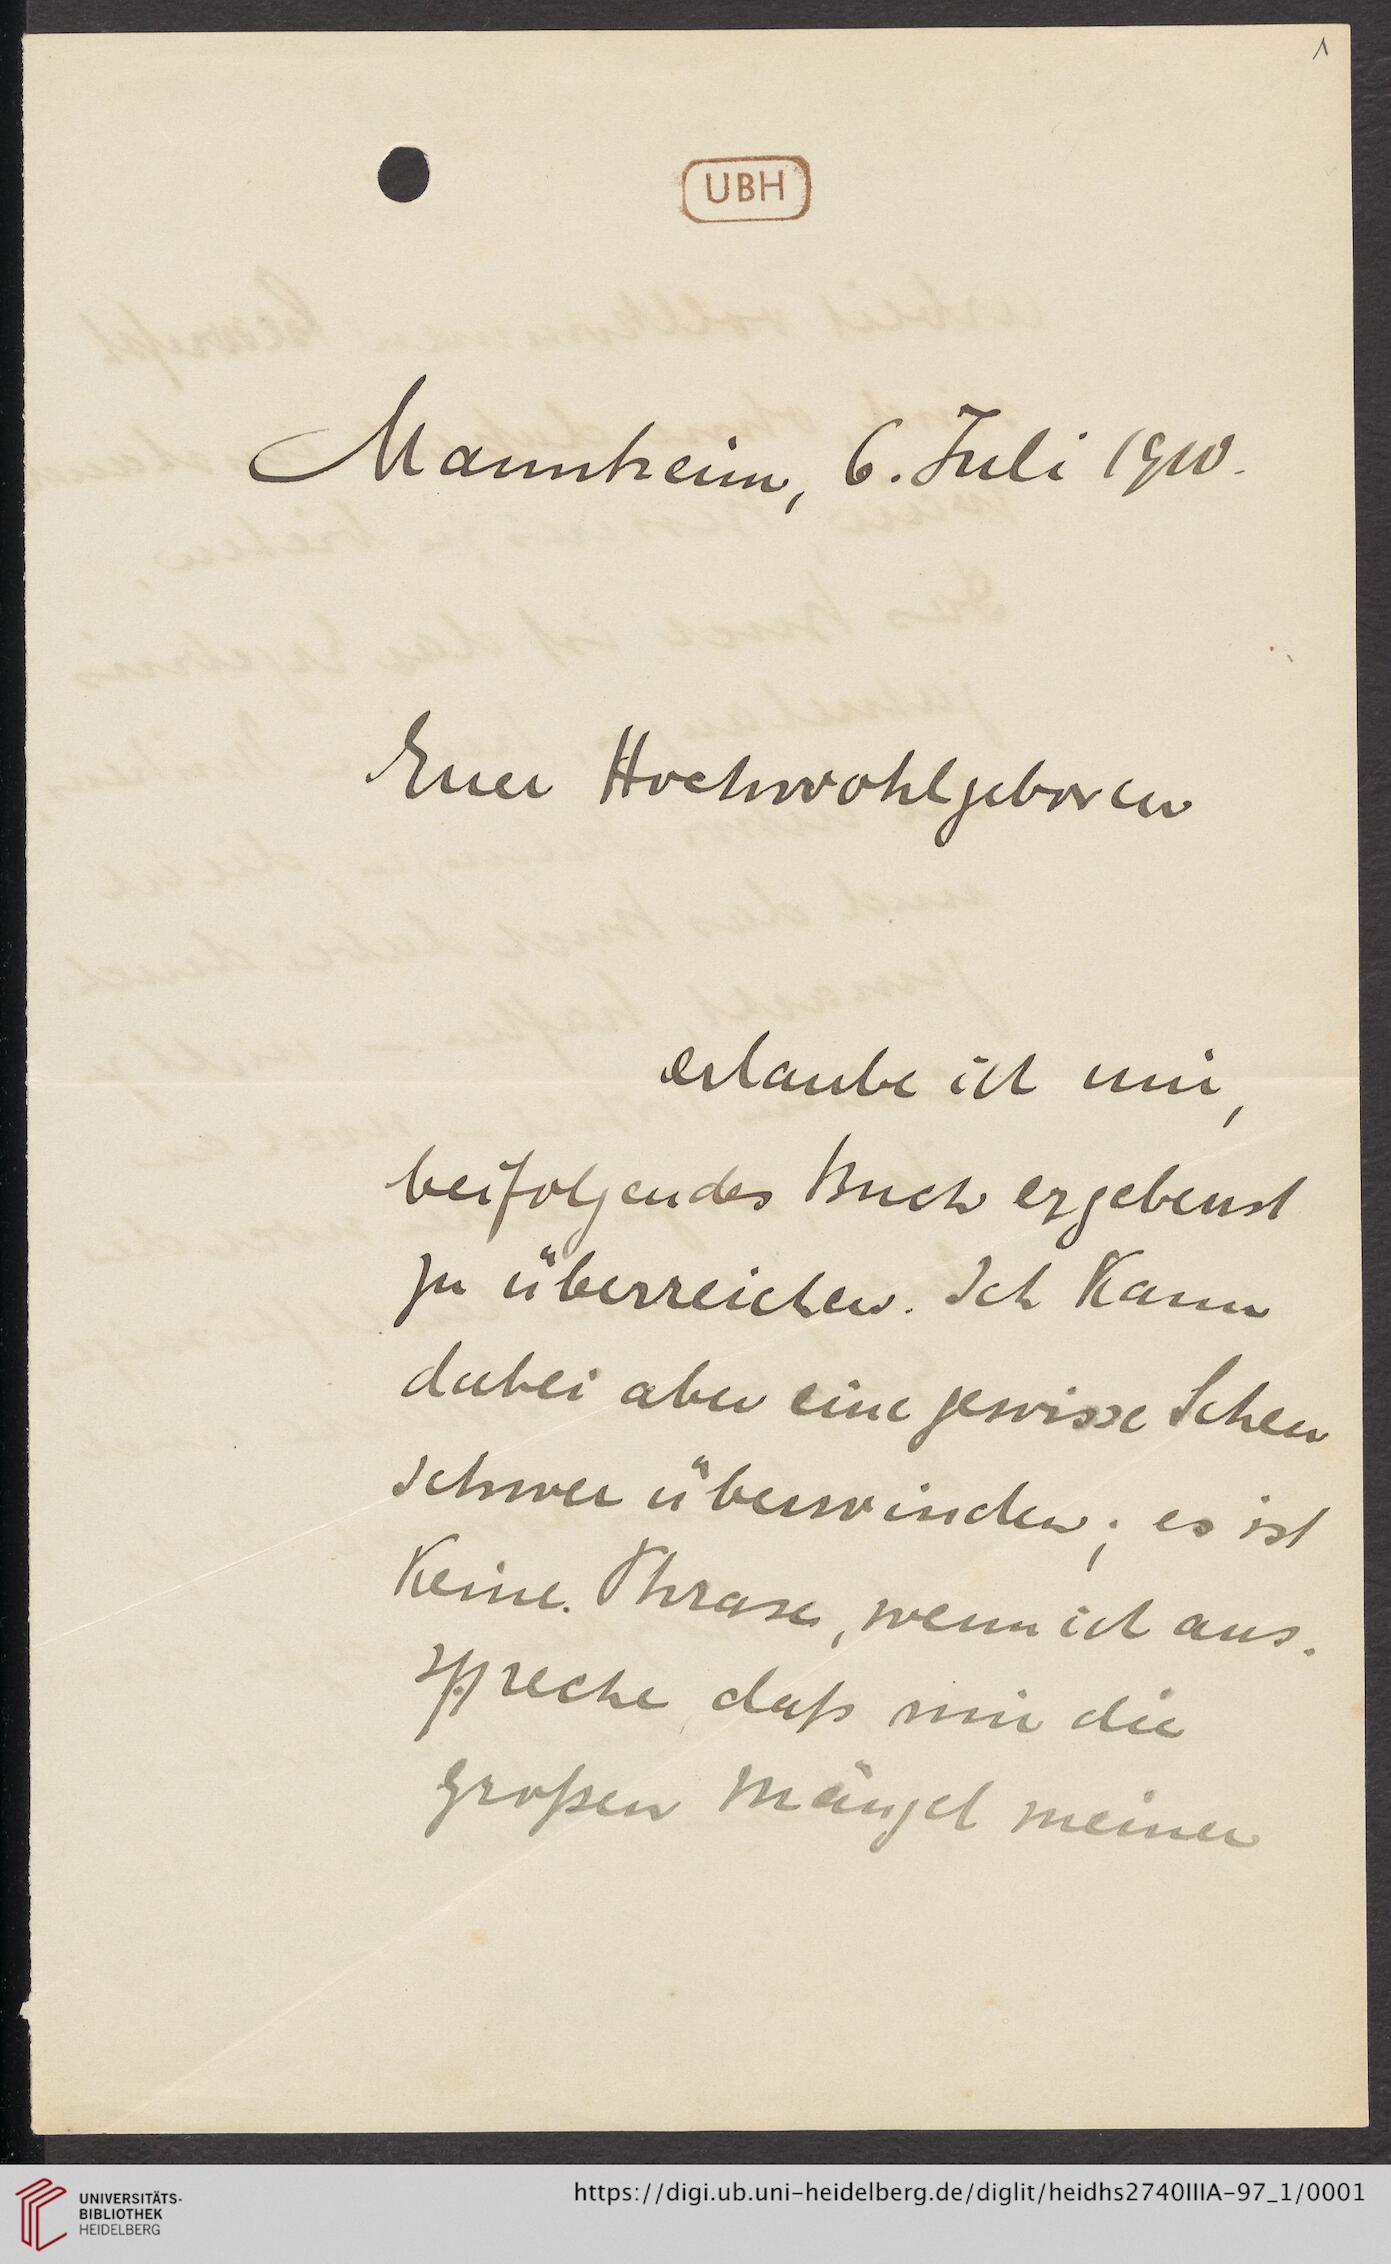 1
UBH
Mannheim, 6. Juli 1910.
Euer Hochwohlgeboren
erlaube ich mir,
beifolgendes Buch ergebenst
zu überreichen. Ich kann
dabei aber eine gewisse Scheu
schwer überwinden; es ist
keine Phrase, wenn ich aus-
spreche, daß mir die
großen Mängel meiner
UNIVERSITÄTS-
BIBLIOTHEK
HEIDELBERG
https://digi.ub.uni-heidelberg.de/diglit/heidhs2740IIIA-97_1/0001